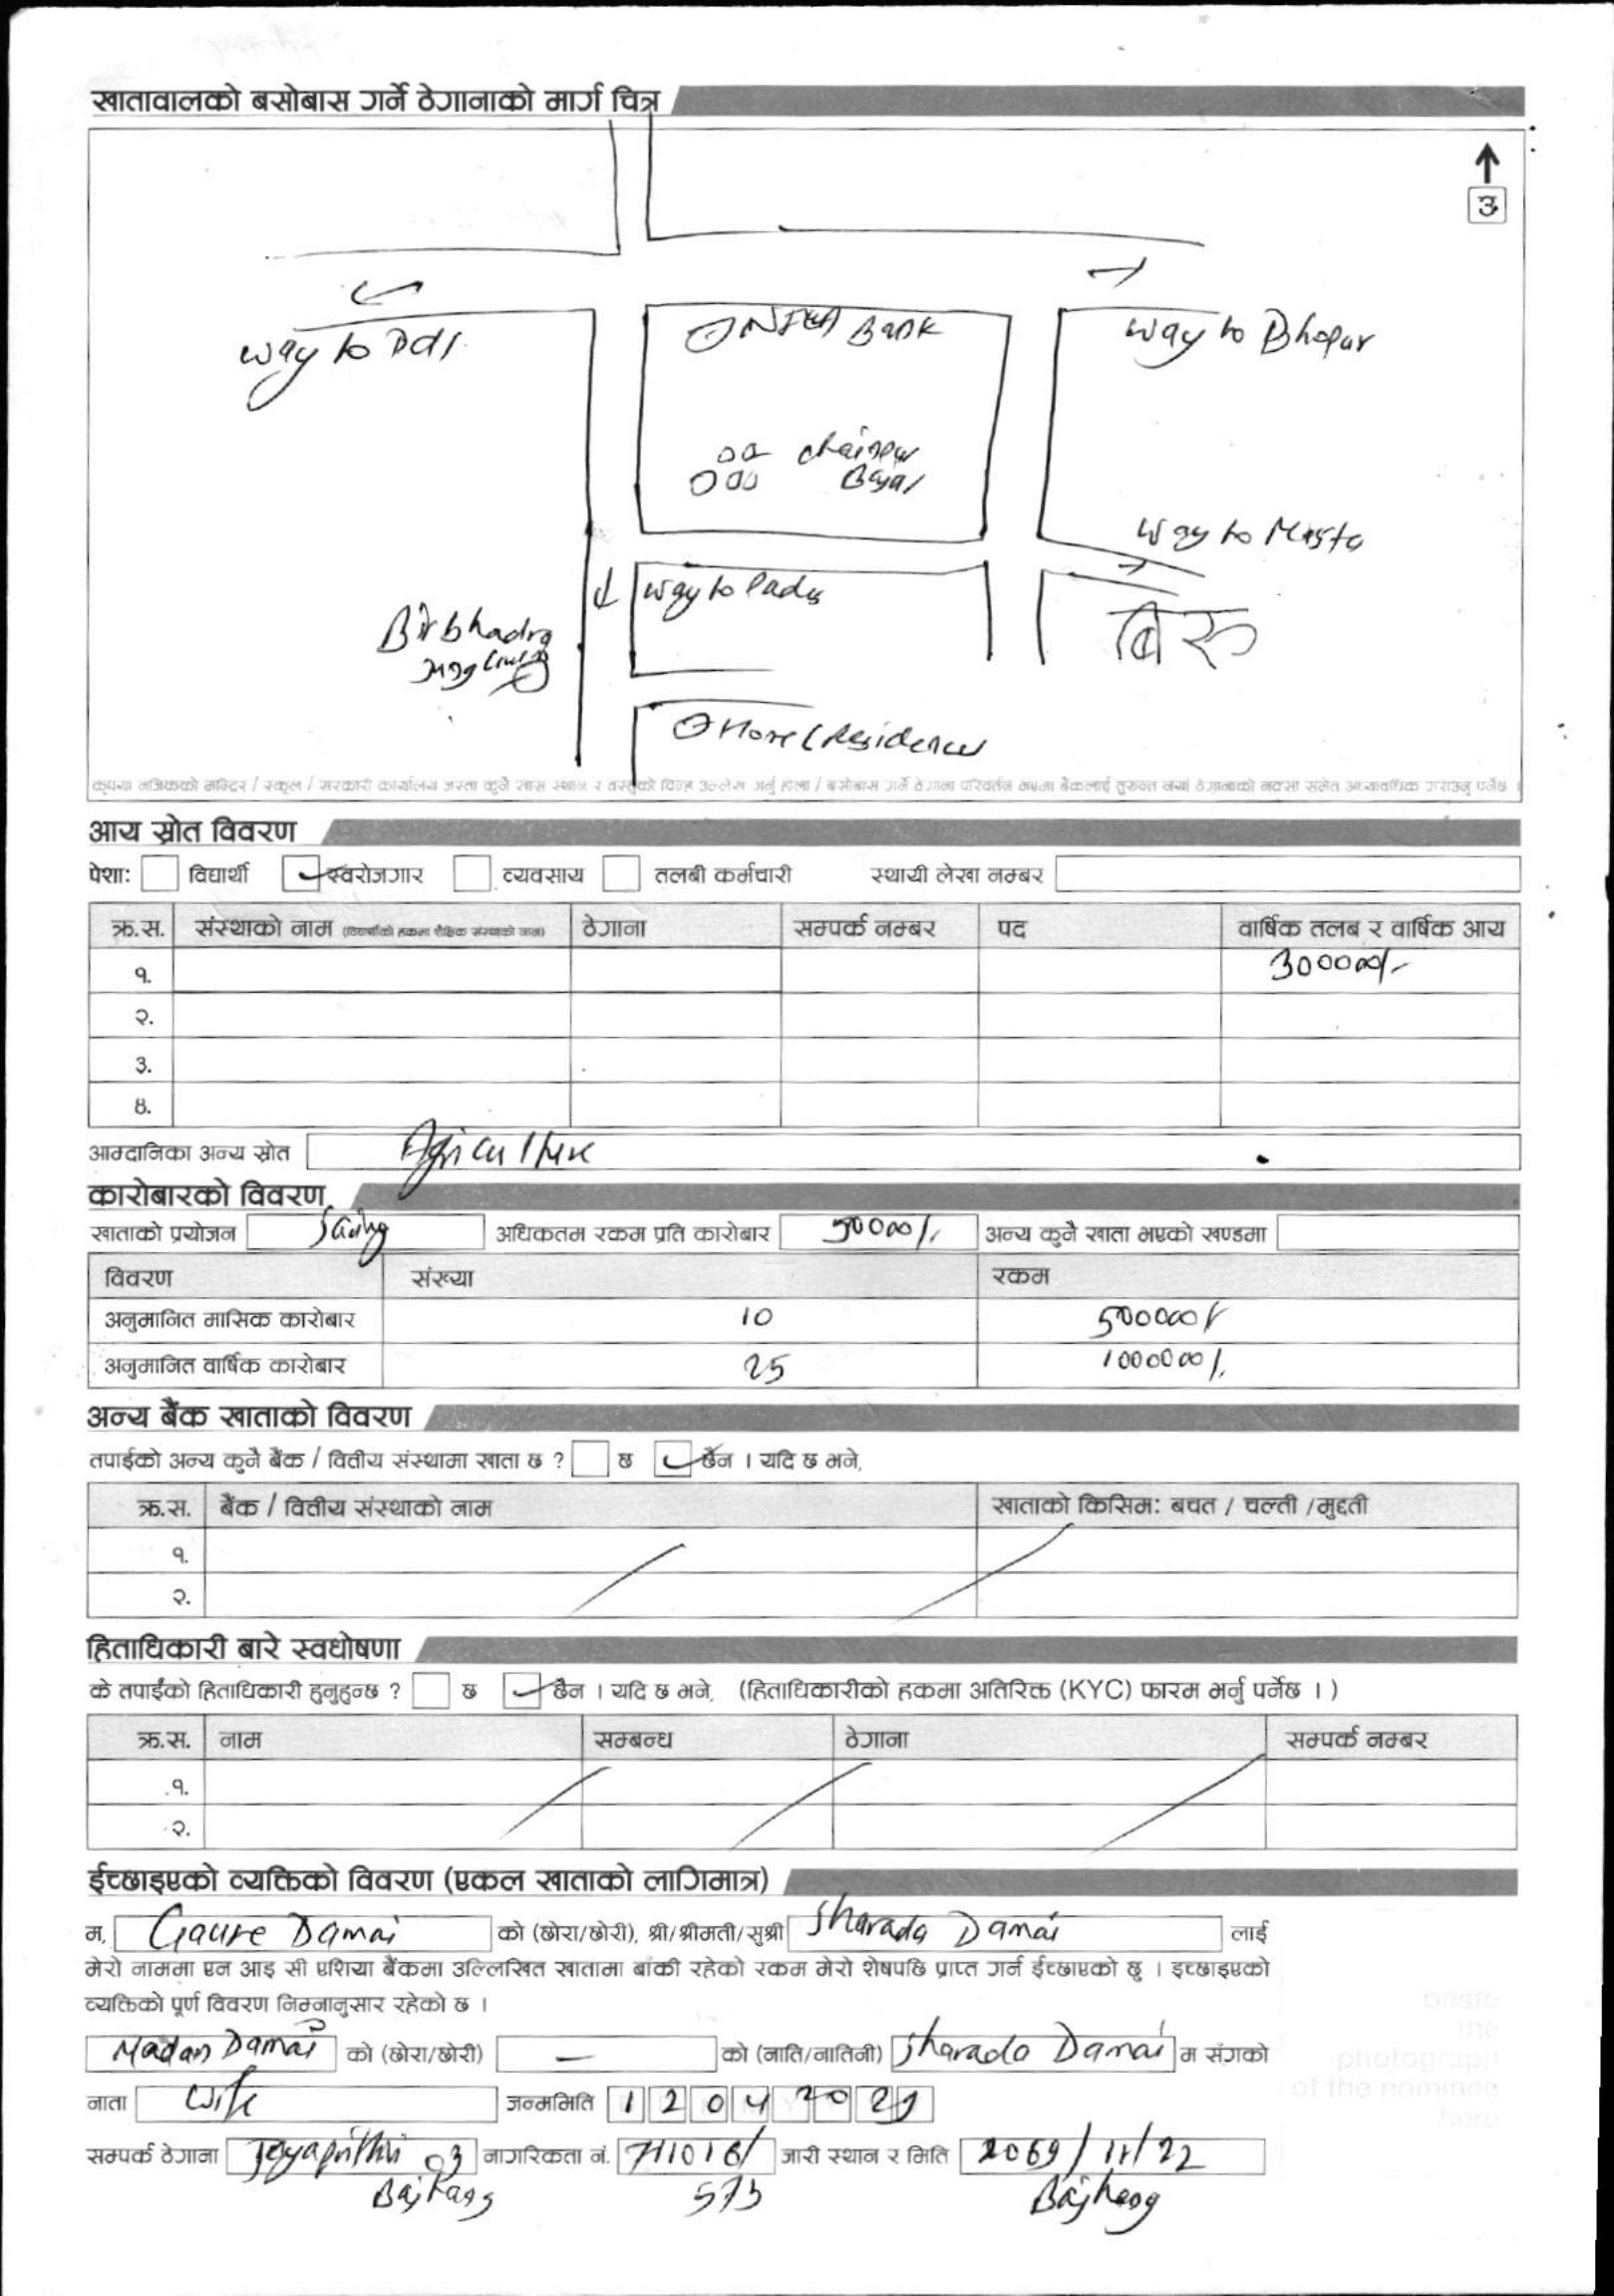 खातावालको बसोबास गर्ने ठेगानाको मार्ग चित्र
उ
way to
Bank
way to Bhopur
chainpur
Bajar
way to Masta
way to Padu
Birbhadra
बिरु
Home (Residence)
कृपया नजिकको मन्दिर / स्कूल / सरकारी कार्यालय जस्ता कुनै खास स्थान र वस्तुको चिन्ह उल्लेख गर्नु होला / बसोबास गर्ने ठेगाना परिवर्तन भएमा बैंकलाई तुरुन्त नयाँ ठेगानाको नक्सा समेत अध्यावधिक गराउनु पर्नेछ ।
आय स्रोत विवरण
पेशा: विद्यार्थी ✓ स्वरोजगार व्यवसाय तलबी कर्मचारी स्थायी लेखा नम्बर
क्र.स. संस्थाको नाम (विद्यार्थीको हकमा शैक्षिक संस्थाको नाम) ठेगाना सम्पर्क नम्बर पद वार्षिक तलब र वार्षिक आय
१. 300000/-
२.
३.
४.
आम्दानिका अन्य स्रोत Agriculture
कारोबारको विवरण
खाताको प्रयोजन Saving अधिकतम रकम प्रति कारोबार 50000/. अन्य कुनै खाता भएको खण्डमा
विवरण संख्या रकम
अनुमानित मासिक कारोबार 10 500000/
अनुमानित वार्षिक कारोबार 25 1000000/.
अन्य बैंक खाताको विवरण
तपाईको अन्य कुनै बैंक / वित्तीय संस्थामा खाता छ ? छ ✓ छैन । यदि छ भने,
क्र.स. बैंक / वित्तीय संस्थाको नाम खाताको किसिम: बचत / चल्ती /मुद्दती
१.
२.
हिताधिकारी बारे स्वघोषणा
के तपाईंको हिताधिकारी हुनुहुन्छ ? छ ✓ छैन । यदि छ भने, (हिताधिकारीको हकमा अतिरिक्त (KYC) फारम भर्नु पर्नेछ । )
क्र.स. नाम सम्बन्ध ठेगाना सम्पर्क नम्बर
१.
२.
ईच्छाइएको व्यक्तिको विवरण (एकल खाताको लागिमात्र)
म, Gaure Damai को (छोरा/छोरी), श्री/श्रीमती/सुश्री Sharada Damai लाई
मेरो नाममा एन आइ सी एशिया बैंकमा उल्लिखित खातामा बाँकी रहेको रकम मेरो शेषपछि प्राप्त गर्न ईच्छाएको छु । इच्छाइएको
व्यक्तिको पूर्ण विवरण निम्नानुसार रहेको छ ।
paste
the
photograph
of the nominee
here
Madan Damai को (छोरा/छोरी) — को (नाति/नातिनी) Sharada Damai म संगको
नाता wife जन्ममिति 1 2 0 4 20 29
सम्पर्क ठेगाना Jayaprithvi 03 नागरिकता नं. 711016/ जारी स्थान र मिति 2069/11/22
Bajhang 573 Bajhang